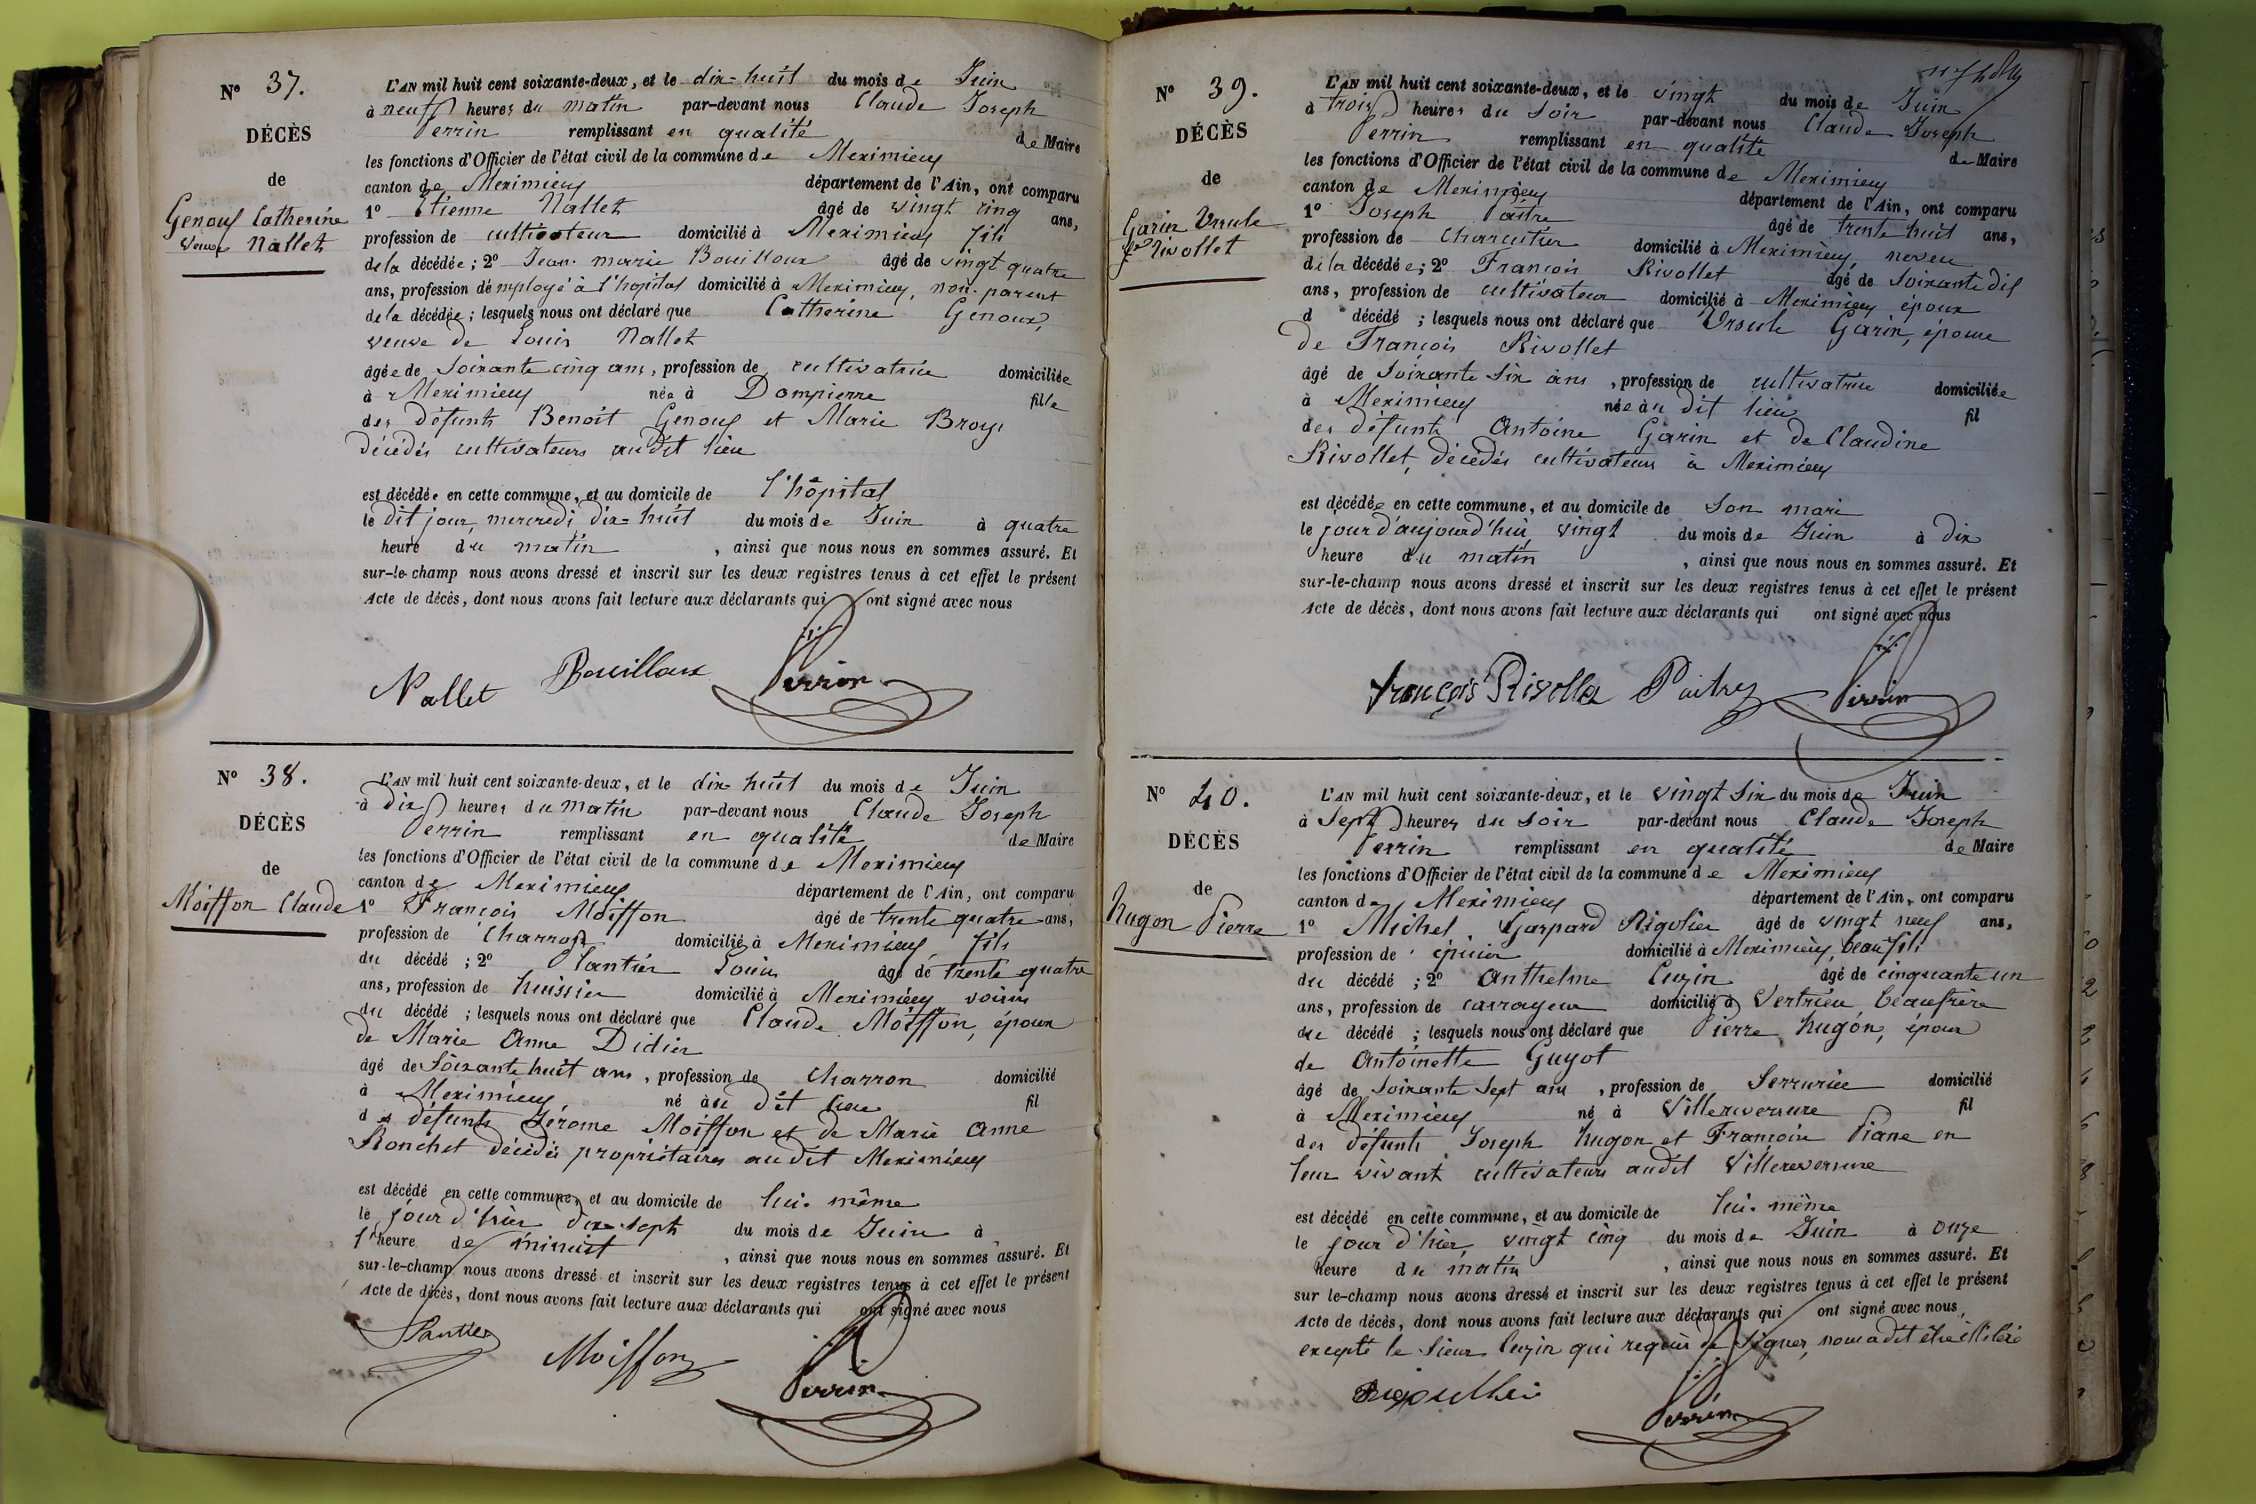 N° 37.
DÉCÈS
de
Genoux Catherine
veuve Nallet
L'AN mil huit cent soixante-deux, et le dix-huit du mois de Juin
à neuf heures du matin par-devant nous Claude Joseph
Perrin remplissant en qualité de Maire
les fonctions d'Officier de l'état civil de la commune de Meximieux
canton de Meximieux département de l'Ain, ont comparu
1° Etienne Nallet âgé de vingt cinq ans,
profession de cultivateur domicilié à Meximieux fils
de la décédée; 2° Jean-marie Bouilloux âgé de vingt quatre
ans, profession d'employé à l'hôpital domicilié à Meximieux, non-parent
de la décédée; lesquels nous ont déclaré que Catherine Genoux,
veuve de Louis Nallet
âgée de Soixante cinq ans, profession de cultivatrice domiciliée
à Meximieux née à Dompierre fille
des défunts Benoit Genoux et Marie Broys
décédés cultivateurs audit lieu
est décédée en cette commune, et au domicile de l'hôpital
le dit jour, mercredi dix-huit du mois de Juin à quatre
heure du matin, ainsi que nous nous en sommes assuré. Et
sur-le-champ nous avons dressé et inscrit sur les deux registres tenus à cet effet le présent
Acte de décès, dont nous avons fait lecture aux déclarants qui ont signé avec nous
Nallet Bouilloux Perrin
N° 38.
DÉCÈS
de
Moiffon Claude
L'AN mil huit cent soixante-deux, et le dix huit du mois de Juin
à dix heures du matin par-devant nous Claude Joseph
Perrin remplissant en qualité de Maire
les fonctions d'Officier de l'état civil de la commune de Meximieux
canton de Meximieux département de l'Ain, ont comparu
1° François Moiffon âgé de trente quatre ans,
profession de Charron domicilié à Meximieux fils
du décédé; 2° Plantier Louis âgé de trente quatre
ans, profession de huissier domicilié à Meximieux voisin
du décédé; lesquels nous ont déclaré que Claude Moiffon, époux
de Marie Anne Didier
âgé de Soixante huit ans, profession de Charron domicilié
à Meximieux, né au dit lieu fil
des défunts Jérome Moiffon et de Marie Anne
Ronchet décédés propriétaires audit Meximieux
est décédé en cette commune, et au domicile de lui-même
le jour d'hier dix-sept du mois de Juin à
l'heure de minuit, ainsi que nous nous en sommes assuré. Et
sur-le-champ nous avons dressé et inscrit sur les deux registres tenus à cet effet le présent
Acte de décès, dont nous avons fait lecture aux déclarants qui ont signé avec nous
Plantier Moiffon Perrin
N° 39.
DÉCÈS
de
Garin Ursule
fe Rivollet
L'AN mil huit cent soixante-deux, et le vingt du mois de Juin
à trois heures du soir par-devant nous Claude Joseph
Perrin remplissant en qualité de Maire
les fonctions d'Officier de l'état civil de la commune de Meximieux
canton de Meximieux département de l'Ain, ont comparu
1° Joseph Paitre âgé de trente huit ans,
profession de Charcutier domicilié à Meximieux, neveu
de la décédée; 2° François Rivollet âgé de soixante dix
ans, profession de cultivateur domicilié à Meximieux époux
d décédé; lesquels nous ont déclaré que Ursule Garin, épouse
de François Rivollet
âgé de Soixante Six ans, profession de cultivatrice domiciliée
à Meximieux née au dit lieu fil
des défunts Antoine Garin et de Claudine
Rivollet, décédés cultivateurs à Meximieux
est décédée en cette commune, et au domicile de son mari
le jour d'aujourd'hui, vingt du mois de Juin à dix
heure du matin, ainsi que nous nous en sommes assuré. Et
sur-le-champ nous avons dressé et inscrit sur les deux registres tenus à cet effet le présent
Acte de décès, dont nous avons fait lecture aux déclarants qui ont signé avec nous
françois Rivolla Paitre Perrin
N° 40.
DÉCÈS
de
Hugon Pierre
L'AN mil huit cent soixante-deux, et le vingt Six du mois de Juin
à Sept heures du soir par-devant nous Claude Joseph
Perrin remplissant en qualité de Maire
les fonctions d'Officier de l'état civil de la commune de Meximieux
canton de Meximieux département de l'Ain, ont comparu
1° Michel Gaspard Rigolier âgé de vingt neuf ans,
profession de épicier domicilié à Meximieux, beau fils
du décédé; 2° Anthelme Cuzin âgé de cinquante un
ans, profession de carrayeur domicilié à Vertrieu beaufrère
du décédé; lesquels nous ont déclaré que Pierre Hugon, époux
de Antoinette Guyot
âgé de soixante Sept ans, profession de Serrurier domicilié
à Meximieux né à Villereversure fil
des défunts Joseph Hugon et Françoise Piane en
leur vivant cultivateurs audit Villereversure
est décédé en cette commune, et au domicile de lui-même
le jour d'hier, vingt cinq du mois de Juin à onze
heure du matin, ainsi que nous nous en sommes assuré. Et
sur le-champ nous avons dressé et inscrit sur les deux registres tenus à cet effet le présent
Acte de décès, dont nous avons fait lecture aux déclarants qui ont signé avec nous,
excepté le sieur Cuzin qui requis de signer, nous a dit être illitéré
Perrin